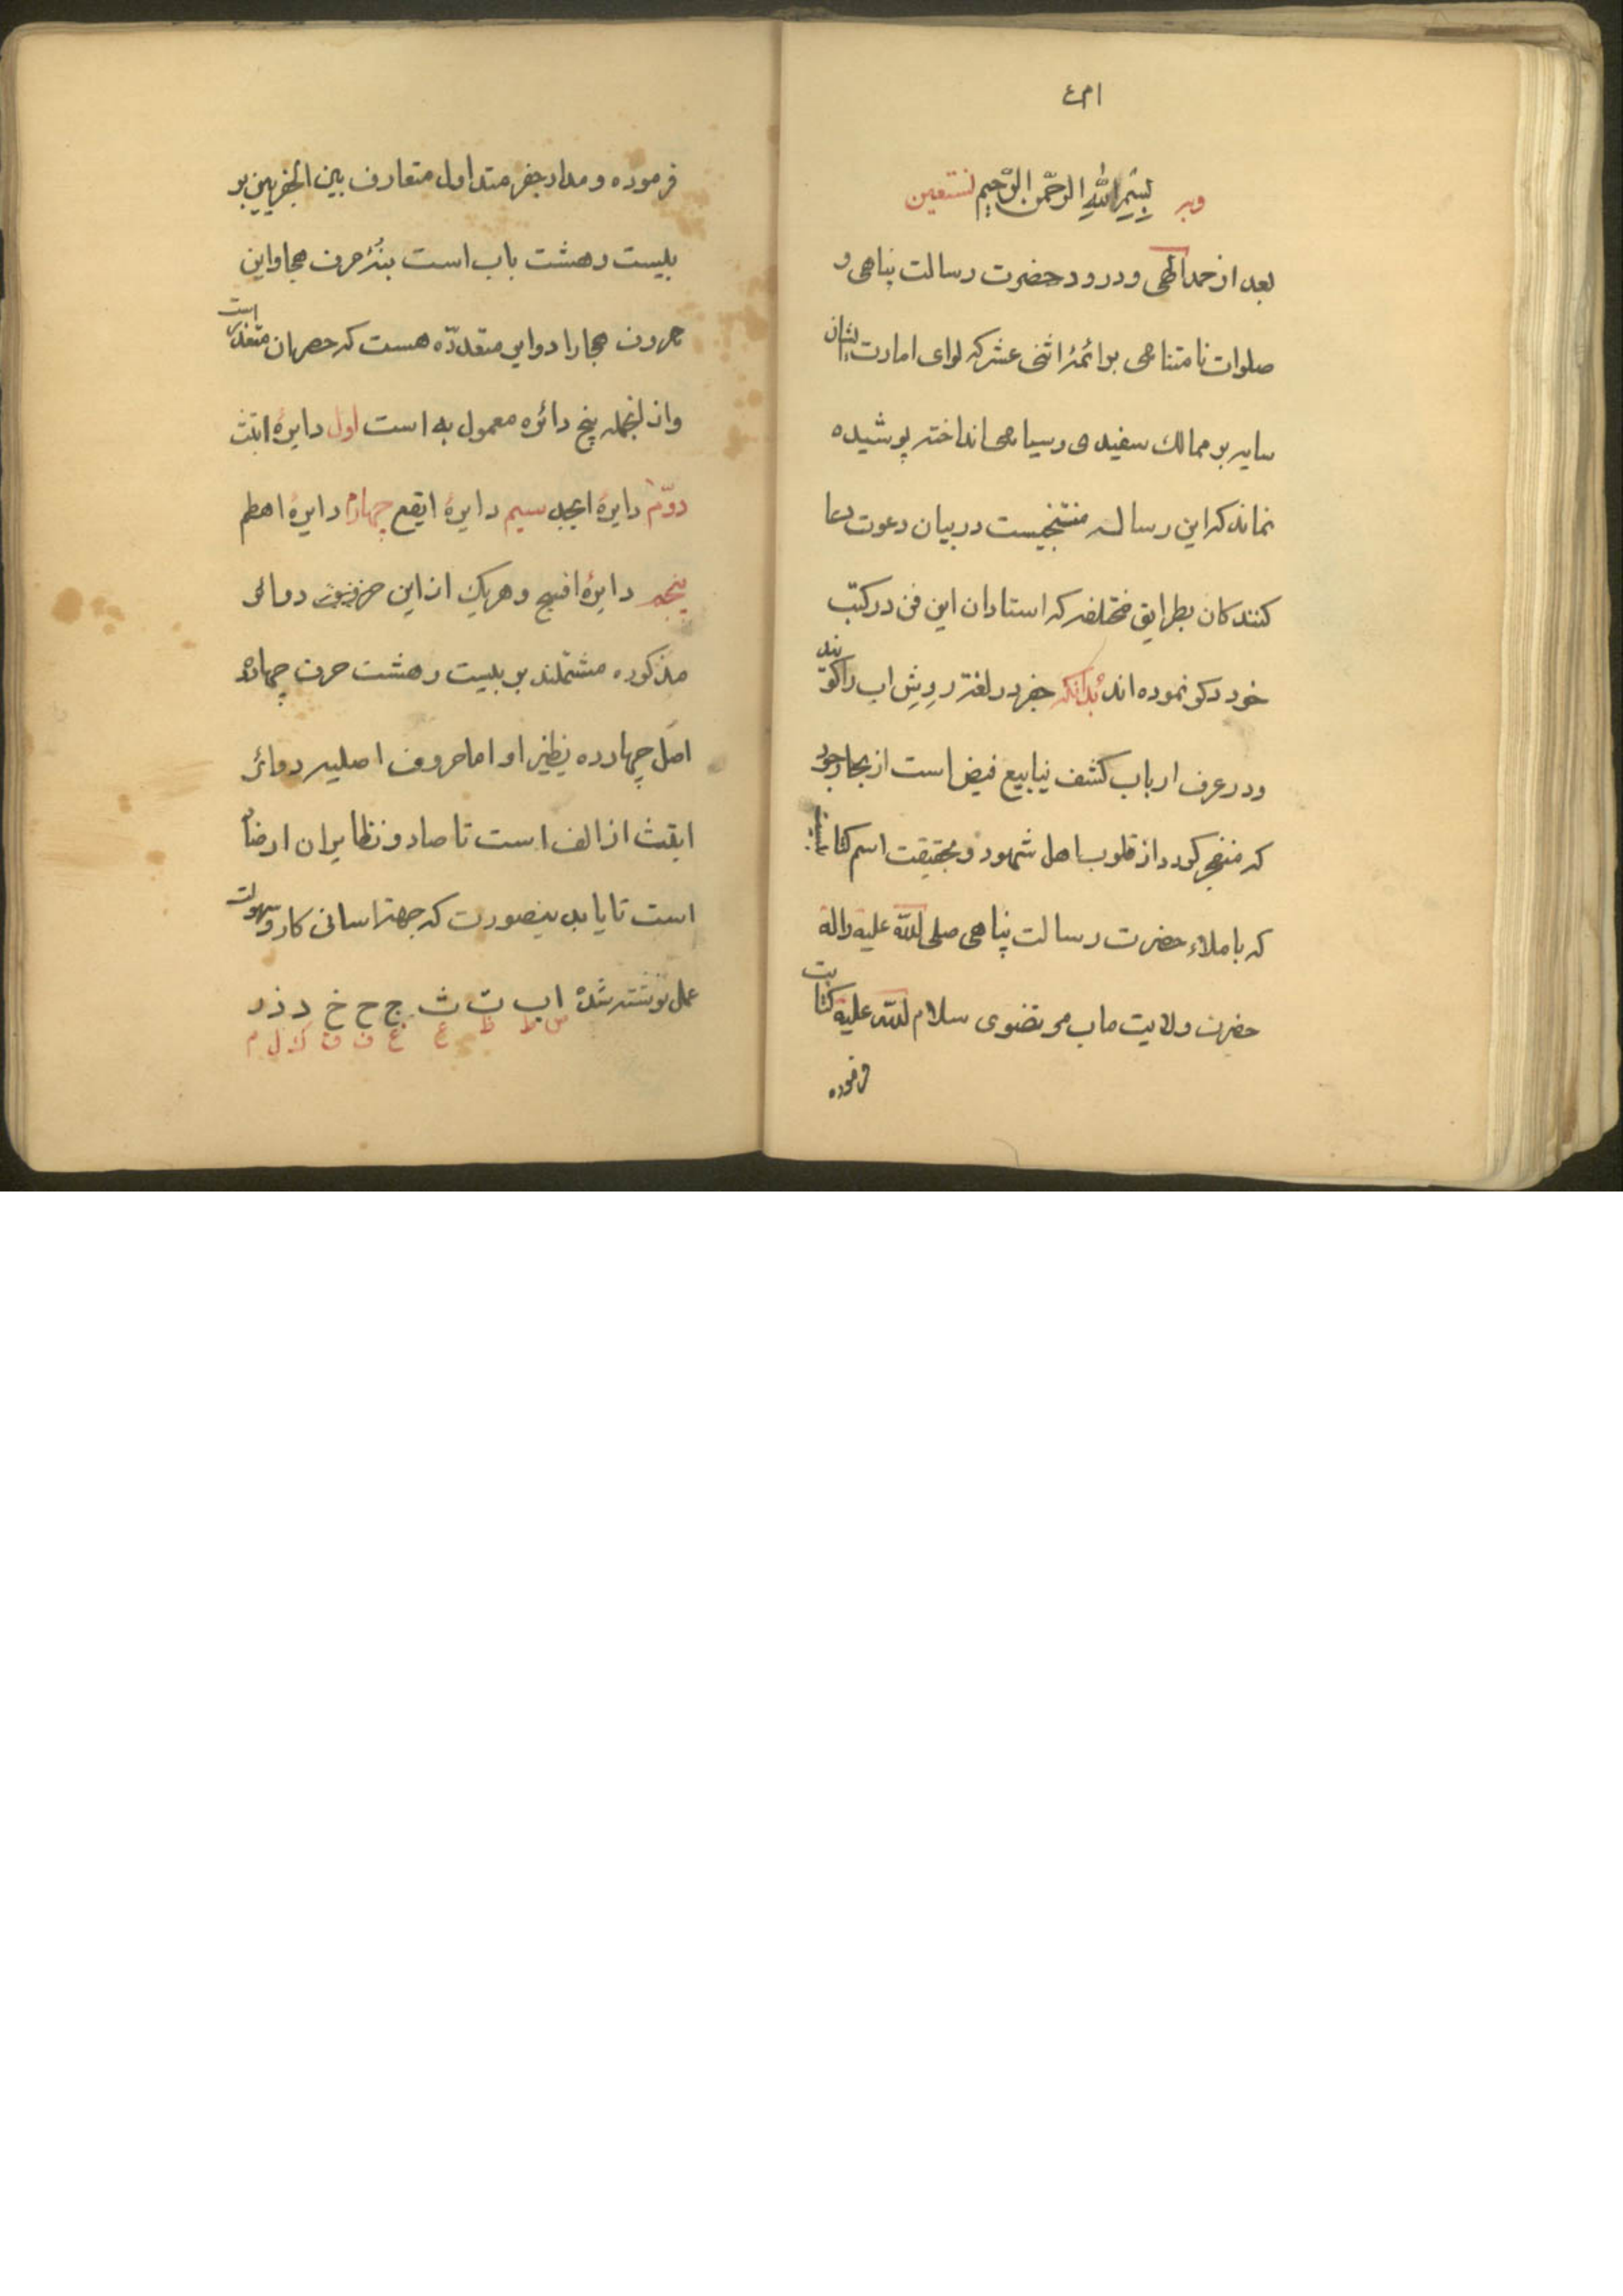 بسم الله الرحمن الرحیم وبه نستعین
بعد از حمد الهی و درود حضرت رسالت پناهی و
صلوات نامتناهی بر ائمهٔ اثنی عشر که لوای امارت ایشان
سایه بر ممالك سفیدی و سیاهی انداخته پوشیده
نماند که این رساله منتخبیست در بیان دعوت دعا
کنندکان بطرایق مختلفه که استادان این فن در کتب
خود ذکر نموده اند بدانکه جفر در لغة روش اب را کویند
و در عرف ارباب کشف ینابیع فیض است از بحار جود
که منفجر کردد از قلوب اهل شهود و بحقیقت اسم کتا
که باملاء حضرت رسالت پناهی صلی الله علیه واله
حضرت ولایت ماب مرتضوی سلام الله علیه کتابت
فرموده
فرموده و مدار جفر متداول متعارف بین الجفریین بر
بیست و هشت باب است بنهٔ حرف هجا و این
حروف هجا را دوایر متعدّده هست که حصر ان متعذر است
و از انجمله پنج دائره معمول به است اول دایرهٔ ابتث
دوّم دایرهٔ ابجد سیم دایرهٔ ایقع چهارم دایرهٔ اهطم
پنجم دایرهٔ افسج و هریك از این دوائر
مذکوره مشتملند بر بیست و هشت حرف چهارده
اصل چهارده نظیر او اما حروف اصلیه دوائر
ابتث از الف است تا صاد و نظایر ان از ضاد
است تا یا بدینصورت که جهة اسانی کار و سهولت
عمل نوشته شده ا ب ت ث ج ح خ د ذ ر
ض ط ظ ع غ ف ق ك ل م